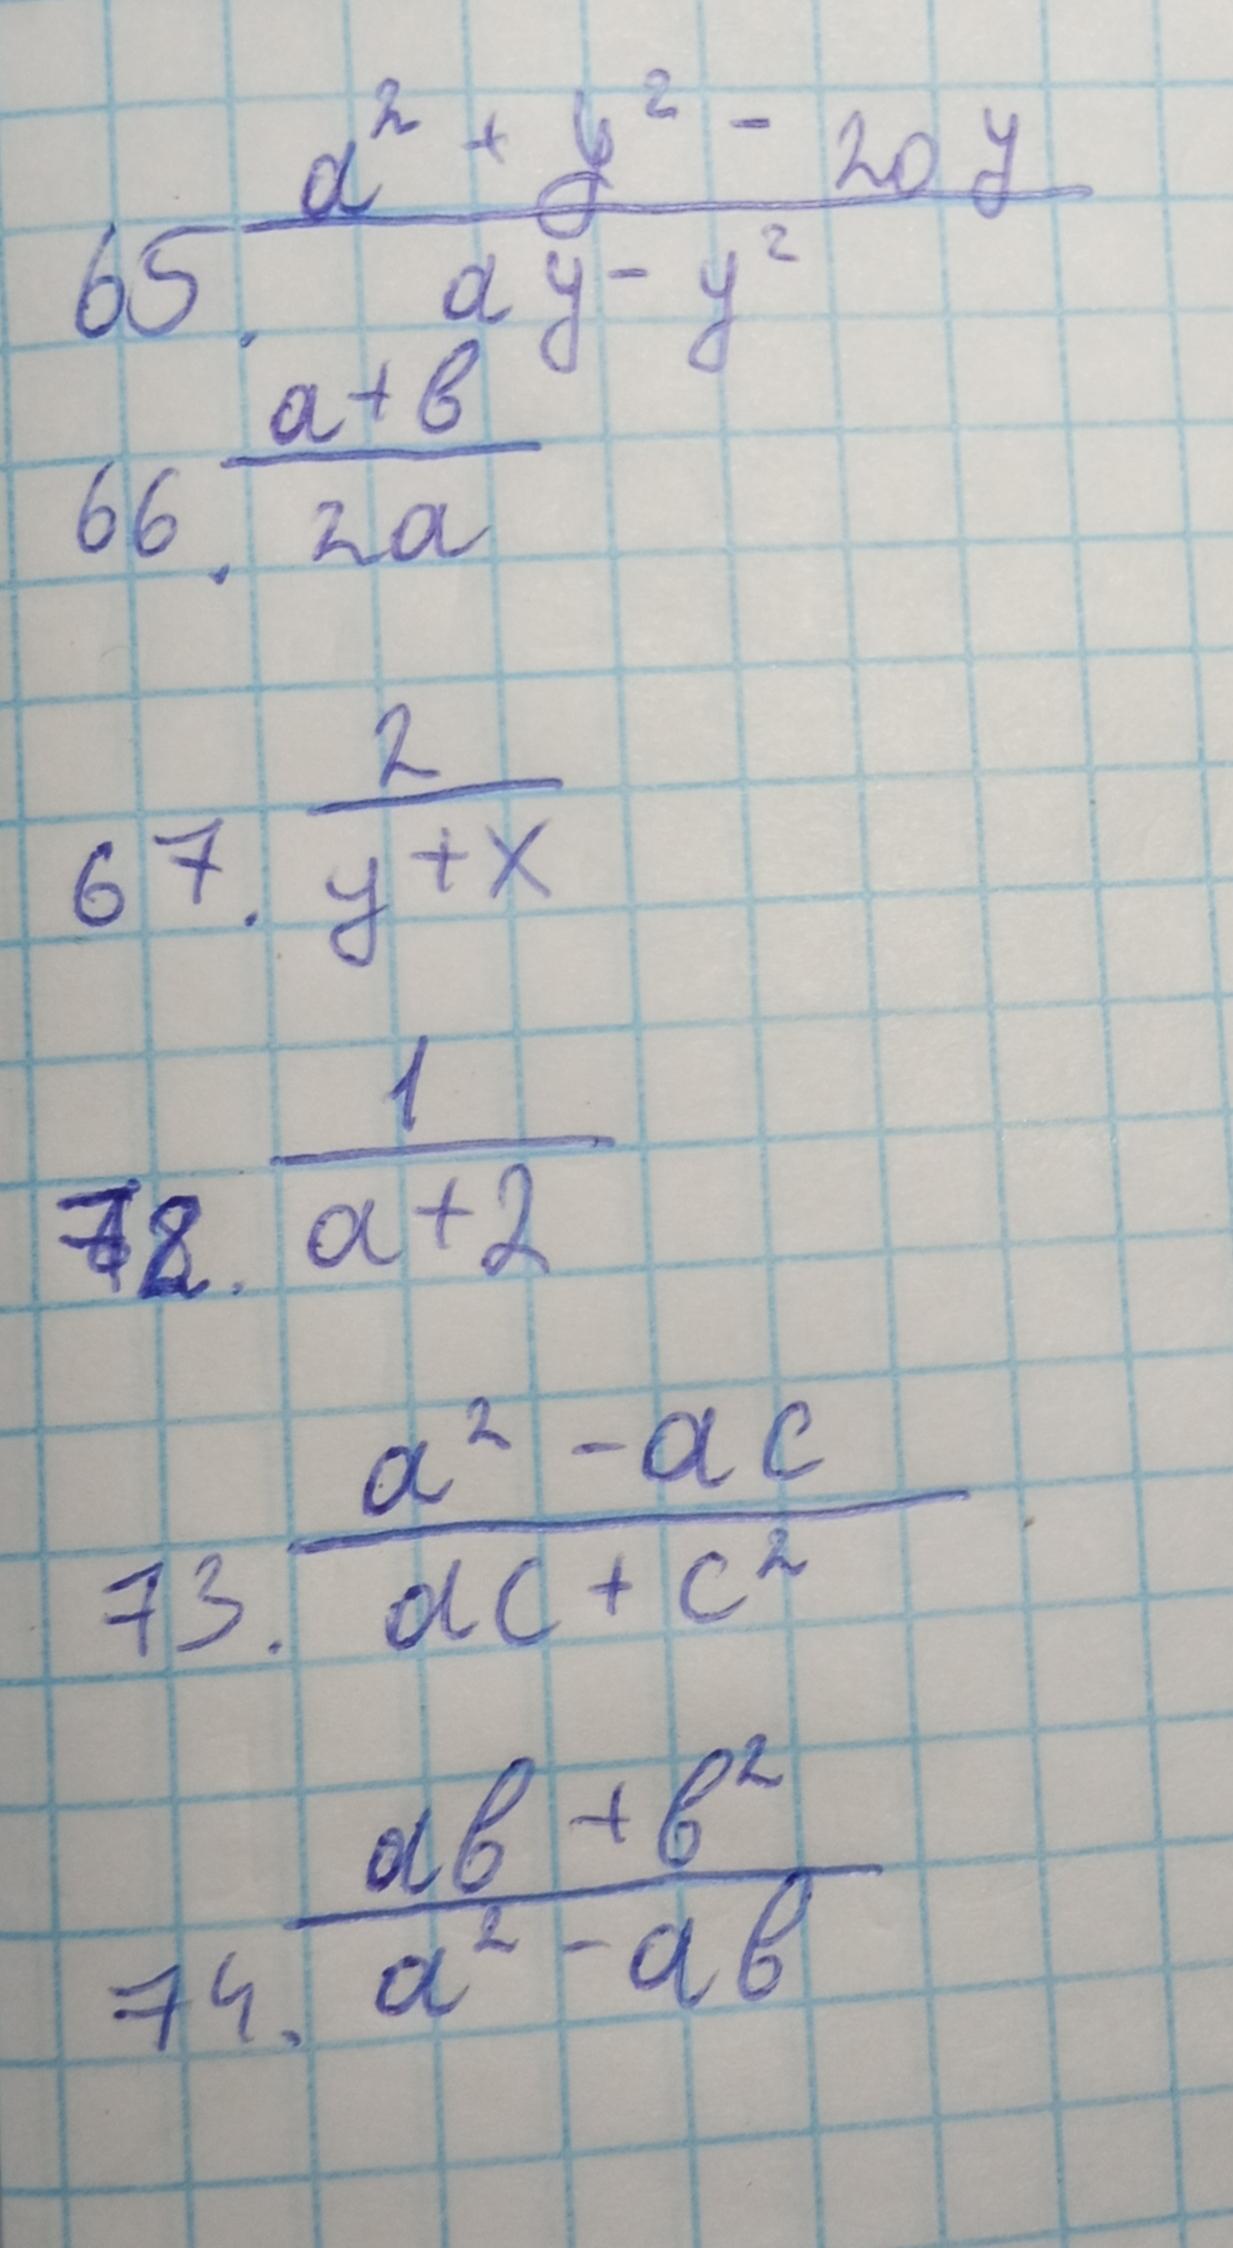 65. (a² + y² - 20y) / (ay - y²)
66. (a+b) / (2a)
67. 2 / (y+x)
72. 1 / (a+2)
73. (a² - ac) / (ac + c²)
74. (ab + b²) / (a² - ab)